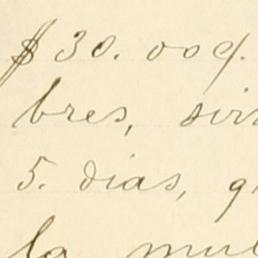 $30.000.
bres, sir
5. dias, q
la mul